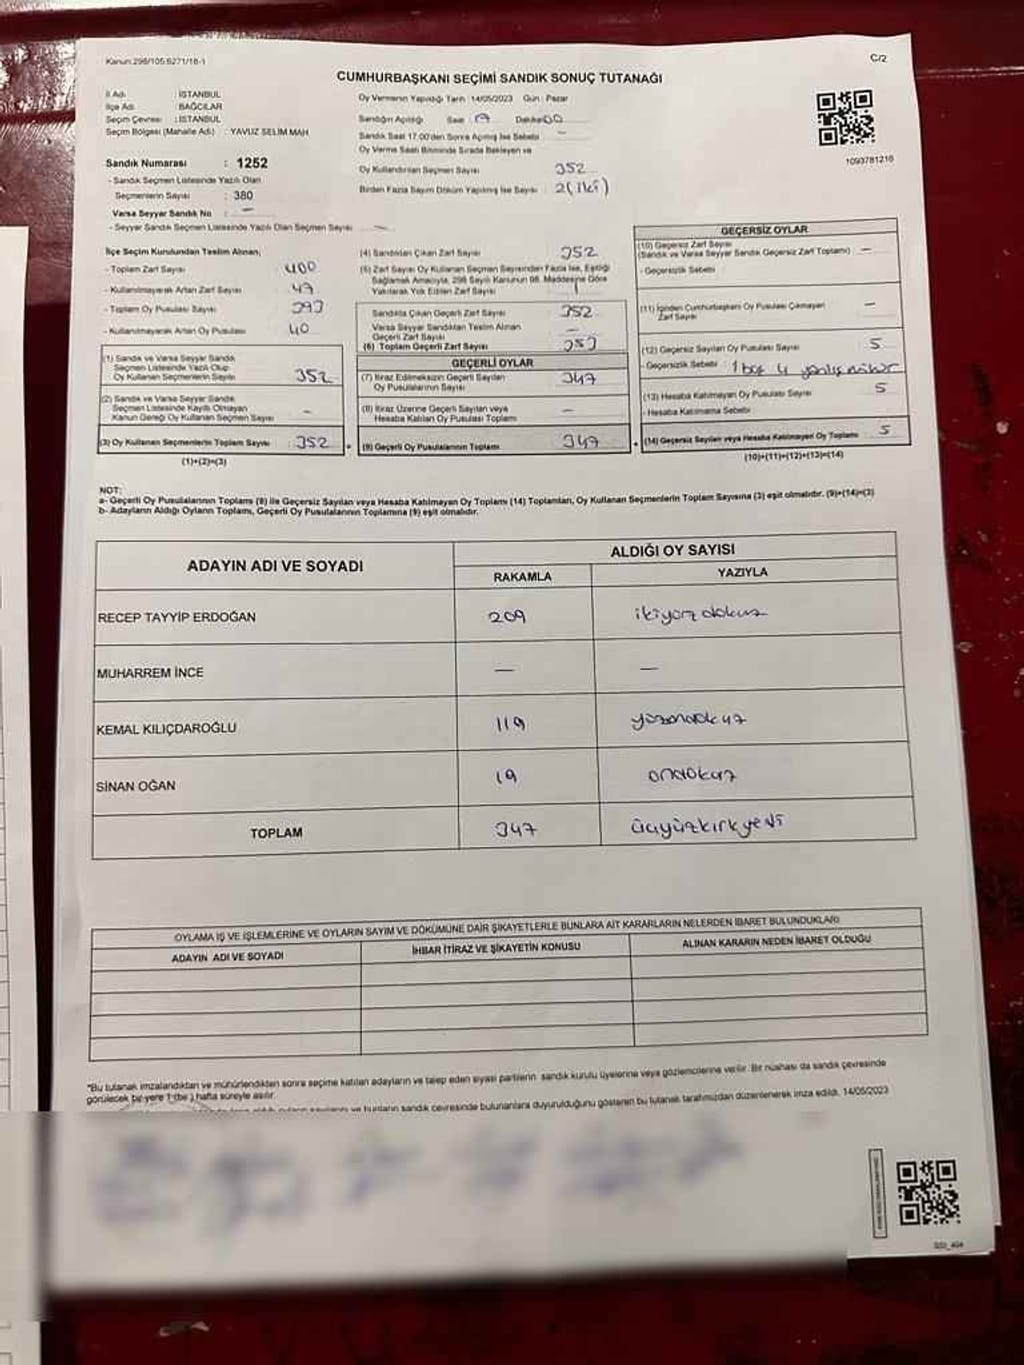 Kanun:298/105.6271/18-1
C/2
CUMHURBAŞKANI SEÇİMİ SANDIK SONUÇ TUTANAĞI
İl Adı : İSTANBUL
İlçe Adı : BAĞCILAR
Seçim Çevresi : İSTANBUL
Seçim Bölgesi (Mahalle Adı) : YAVUZ SELİM MAH
Sandık Numarası : 1252
- Sandık Seçmen Listesinde Yazılı Olan
Seçmenlerin Sayısı : 380
Varsa Seyyar Sandık No : —
- Seyyar Sandık Seçmen Listesinde Yazılı Olan Seçmen Sayısı : —
Oy Vermenin Yapıldığı Tarih 14/05/2023 Gün : Pazar
Sandığın Açıldığı Saat 17 Dakika 00
Sandık Saat 17.00'den Sonra Açılmış İse Sebebi —
Oy Verme Saati Bitiminde Sırada Bekleyen ve
Oy Kullandırılan Seçmen Sayısı 352
Birden Fazla Sayım Döküm Yapılmış İse Sayısı 2(iki)
1093781216
İlçe Seçim Kurulundan Teslim Alınan;
- Toplam Zarf Sayısı 400
- Kullanılmayarak Artan Zarf Sayısı 47
- Toplam Oy Pusulası Sayısı 393
- Kullanılmayarak Artan Oy Pusulası 40
(1) Sandık ve Varsa Seyyar Sandık
Seçmen Listesinde Yazılı Olup
Oy Kullanan Seçmenlerin Sayısı 352
(2) Sandık ve Varsa Seyyar Sandık
Seçmen Listesinde Kayıtlı Olmayan
Kanun Gereği Oy Kullanan Seçmen Sayısı -
(3) Oy Kullanan Seçmenlerin Toplam Sayısı 352
(1)+(2)=(3)
(4) Sandıktan Çıkan Zarf Sayısı 352
(5) Zarf Sayısı Oy Kullanan Seçmen Sayısından Fazla İse, Eşitliği
Sağlamak Amacıyla, 298 Sayılı Kanunun 98. Maddesine Göre
Yakılarak Yok Edilen Zarf Sayısı
Sandıkta Çıkan Geçerli Zarf Sayısı 352
Varsa Seyyar Sandıktan Teslim Alınan
Geçerli Zarf Sayısı —
(6) Toplam Geçerli Zarf Sayısı
GEÇERLİ OYLAR
(7) İtiraz Edilmeksizin Geçerli Sayılan
Oy Pusulalarının Sayısı 347
(8) İtiraz Üzerine Geçerli Sayılan veya
Hesaba Katılan Oy Pusulası Toplamı —
(9) Geçerli Oy Pusulalarının Toplamı 347
GEÇERSİZ OYLAR
(10) Geçersiz Zarf Sayısı
(Sandık ve Varsa Seyyar Sandık Geçersiz Zarf Toplamı) —
- Geçersizlik Sebebi
(11) İçinden Cumhurbaşkanı Oy Pusulası Çıkmayan
Zarf Sayısı —
(12) Geçersiz Sayılan Oy Pusulası Sayısı 5
- Geçersizlik Sebebi : 1 boş 4 yanlış mühür
(13) Hesaba Katılmayan Oy Pusulası Sayısı 5
- Hesaba Katılmama Sebebi
(14) Geçersiz Sayılan veya Hesaba Katılmayan Oy Toplamı 5
(10)+(11)+(12)+(13)=(14)
NOT:
a- Geçerli Oy Pusulalarının Toplamı (9) ile Geçersiz Sayılan veya Hesaba Katılmayan Oy Toplamı (14) Toplamları, Oy Kullanan Seçmenlerin Toplam Sayısına (3) eşit olmalıdır. (9)+(14)=(3)
b- Adayların Aldığı Oyların Toplamı, Geçerli Oy Pusulalarının Toplamına (9) eşit olmalıdır.
ADAYIN ADI VE SOYADI
ALDIĞI OY SAYISI
RAKAMLA YAZIYLA
RECEP TAYYİP ERDOĞAN 209 ikiyüz dokuz
MUHARREM İNCE — —
KEMAL KILIÇDAROĞLU 119 yüzondokuz
SİNAN OĞAN 19 ondokuz
TOPLAM 347 üçyüzkırkyedi
OYLAMA İŞ VE İŞLEMLERİNE VE OYLARIN SAYIM VE DÖKÜMÜNE DAİR ŞİKAYETLERLE BUNLARA AİT KARARLARIN NELERDEN İBARET BULUNDUKLARI
ADAYIN ADI VE SOYADI İHBAR İTİRAZ VE ŞİKAYETİN KONUSU ALINAN KARARIN NEDEN İBARET OLDUĞU
"Bu tutanak imzalandıktan ve mühürlendikten sonra seçime katılan adayların ve talep eden siyasi partilerin sandık kurulu üyelerine veya gözlemcilerine verilir. Bir nüshası da sandık çevresinde
görülecek bir yere 1 (bir) hafta süreyle asılır.
ve bunların sandık çevresinde bulunanlara duyurulduğunu gösteren bu tutanak tarafımızdan düzenlenerek imza edildi. 14/05/2023